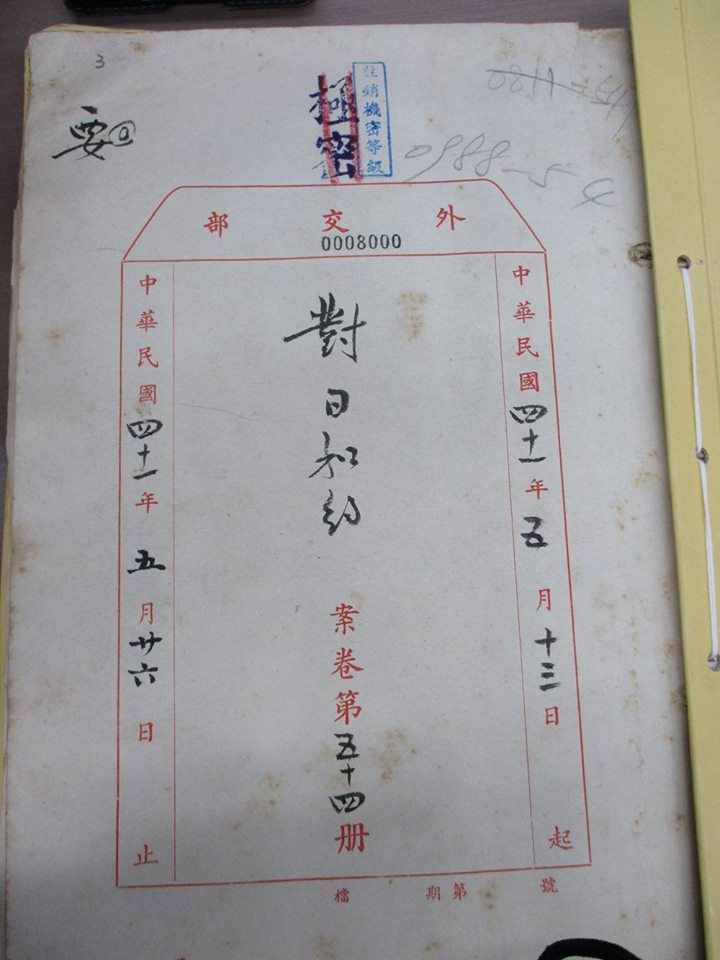 3
要
極密
註銷機密等級
0988-54
外交部
0008000
中華民國四十一年五月十三日起
對日和約
案卷第五十四册
中華民國四十一年五月廿六日止
號
第期
檔